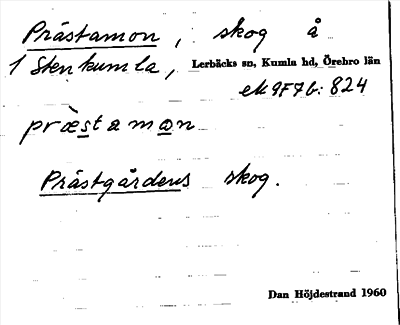 Prästamon, skog å
1 Stenkumla, Lerbäcks sn, Kumla hd, Örebro län
ek 9F7b: 824
præ̀stamo̲n
Prästgårdens skog.
Dan Höjdestrand 1960